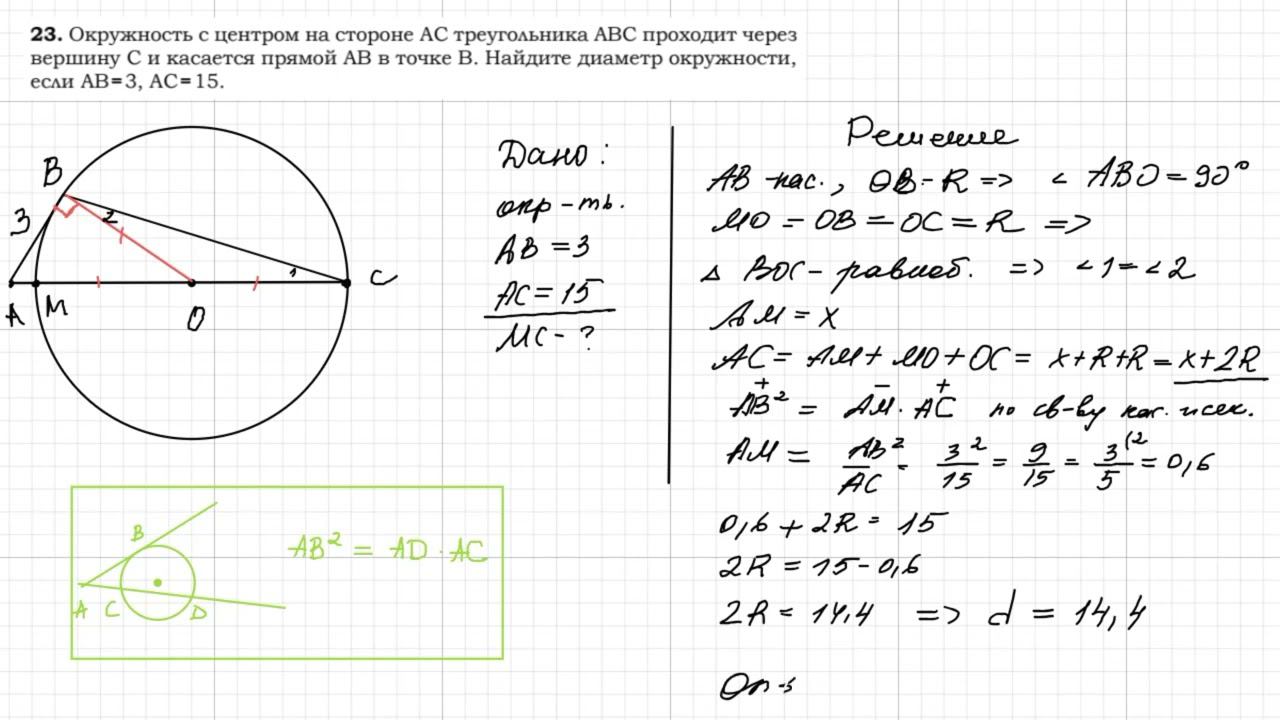 23. Окружность с центром на стороне AC треугольника ABC проходит через
вершину C и касается прямой AB в точке B. Найдите диаметр окружности,
если AB=3, AC=15.
B
3
2
1
C
A
M
O
Дано:
окр-ть.
AB = 3
AC = 15
MC - ?
Решение
AB - кас., OB - R => < ABO = 90°
MO = OB = OC = R =>
△ BOC - равноб. => <1 = <2
AM = x
AC = AM + MO + OC = x+R+R = x+2R
+ - +
AB² = AM · AC по св-ву кас. и сек.
AM = AB²/AC = 3²/15 = 9/15 = 3/5 (2 = 0,6
0,6 + 2R = 15
2R = 15 - 0,6
2R = 14,4 => d = 14,4
B
AB² = AD · AC
A C D